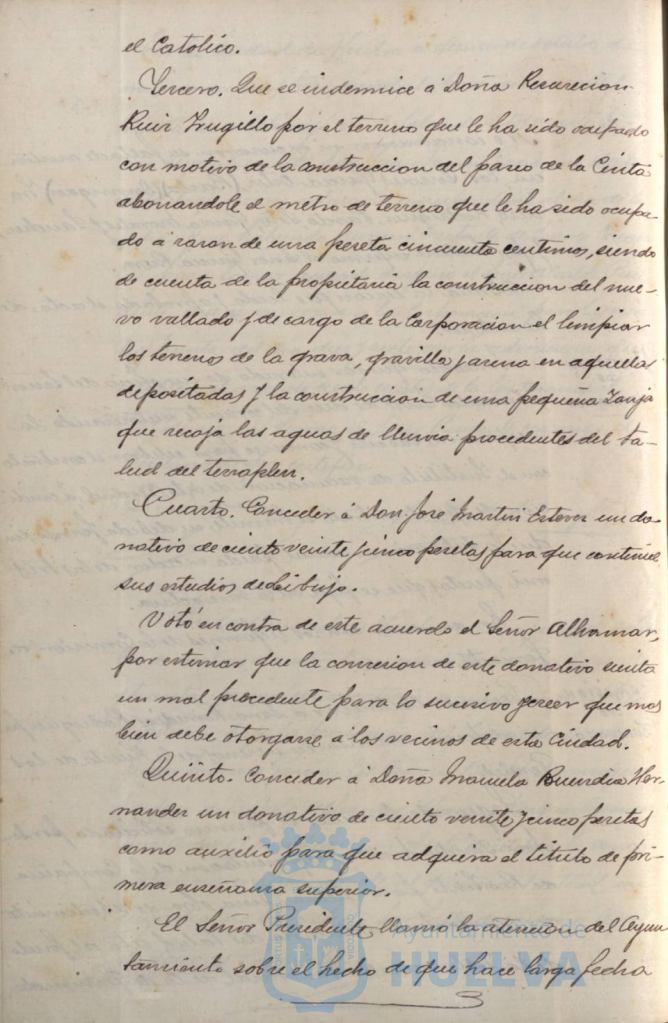 el Catolico.
Tercero. Que se indemnice á Doña Resurecion
Ruiz Trugillo por el terreno que le ha sido ocupado
con motivo de la construccion del paseo de la Cinta
abonandole el metro de terreno que le ha sido ocupa-
do á razon de una peseta cincuenta centimos, siendo
de cuenta de la propietaria la construccion del nue-
vo vallado y de cargo de la Corporacion el limpiar
los terrenos de la grava, gravilla y arena en aquellas
depositadas y la construccion de una pequeña zanja
que recoja las aguas de lluvia procedentes del ta-
lud del terraplen.
Cuarto. Conceder á Don José Martin Estevez un do-
nativo de ciento veinte y cinco pesetas para que continue
sus estudios de dibujo.
Votó en contra de este acuerdo el Señor Alhamar,
por estimar que la concesion de este donativo sienta
un mal precedente para lo sucesivo y creer que mas
bien debe otorgarse á los vecinos de esta Ciudad.
Quinto. Conceder á Doña Manuela Buendia Her-
nandez un donativo de ciento veinte y cinco pesetas
como auxilio para que adquiera el titulo de pri-
mera enseñanza superior.
El Señor Presidente llamó la atencion del Ayun
tamiento sobre el hecho de que hace larga fecha
Ayuntamiento de
HUELVA